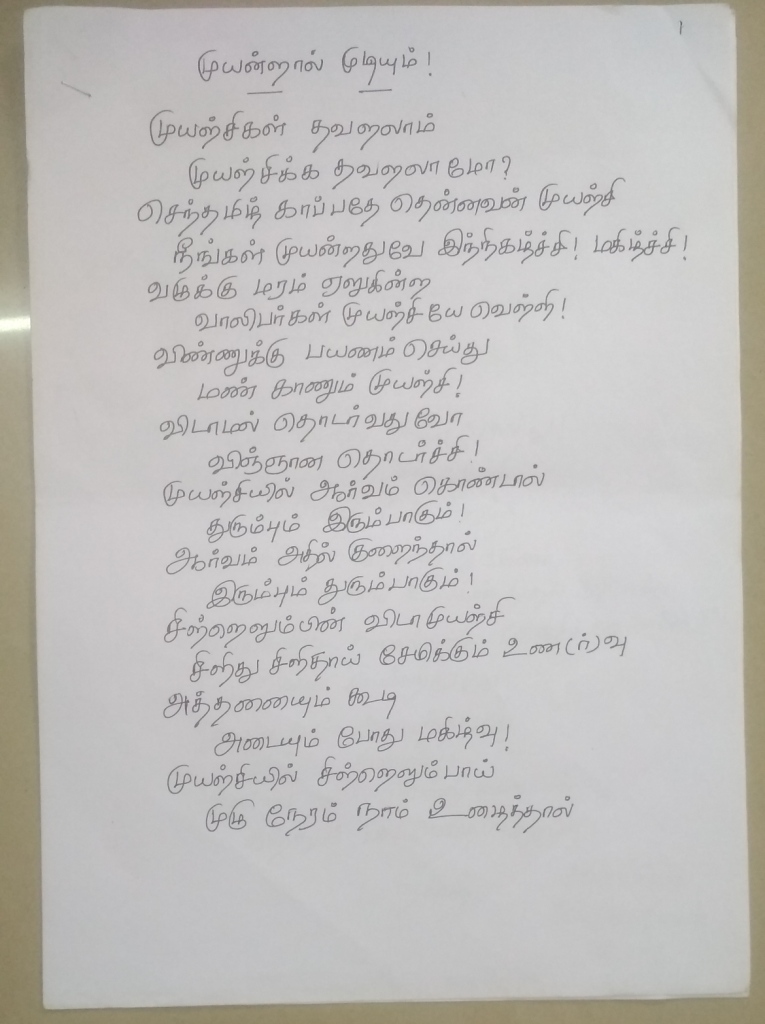 1
முயன்றால் முடியும்!
முயற்சிகள் தவறலாம்
முயற்சிக்க தவறலாமோ?
செந்தமிழ் காப்பதே தென்னவன் முயற்சி
நீங்கள் முயன்றதுவே இந்நிகழ்ச்சி! மகிழ்ச்சி!
வழுக்கு மரம் ஏறுகின்ற
வாலிபர்கள் முயற்சியே வெள்ளி!
விண்ணுக்கு பயணம் செய்து
மண் காணும் முயற்சி!
விடாமல் தொடர்வதுவோ
விஞ்ஞான தொடர்ச்சி!
முயற்சியில் ஆர்வம் கொண்டால்
துரும்பும் இரும்பாகும்!
ஆர்வம் அதில் குறைந்தால்
இரும்பும் துரும்பாகும்!
சிற்றெறும்பின் விடாமுயற்சி
சிறிது சிறிதாய் சேமிக்கும் உண(ர்)வு
அத்தனையும் கூடி
அடையும் போது மகிழ்வு!
முயற்சியில் சிற்றெறும்பாய்
முழு நேரம் நாம் உழைத்தால்